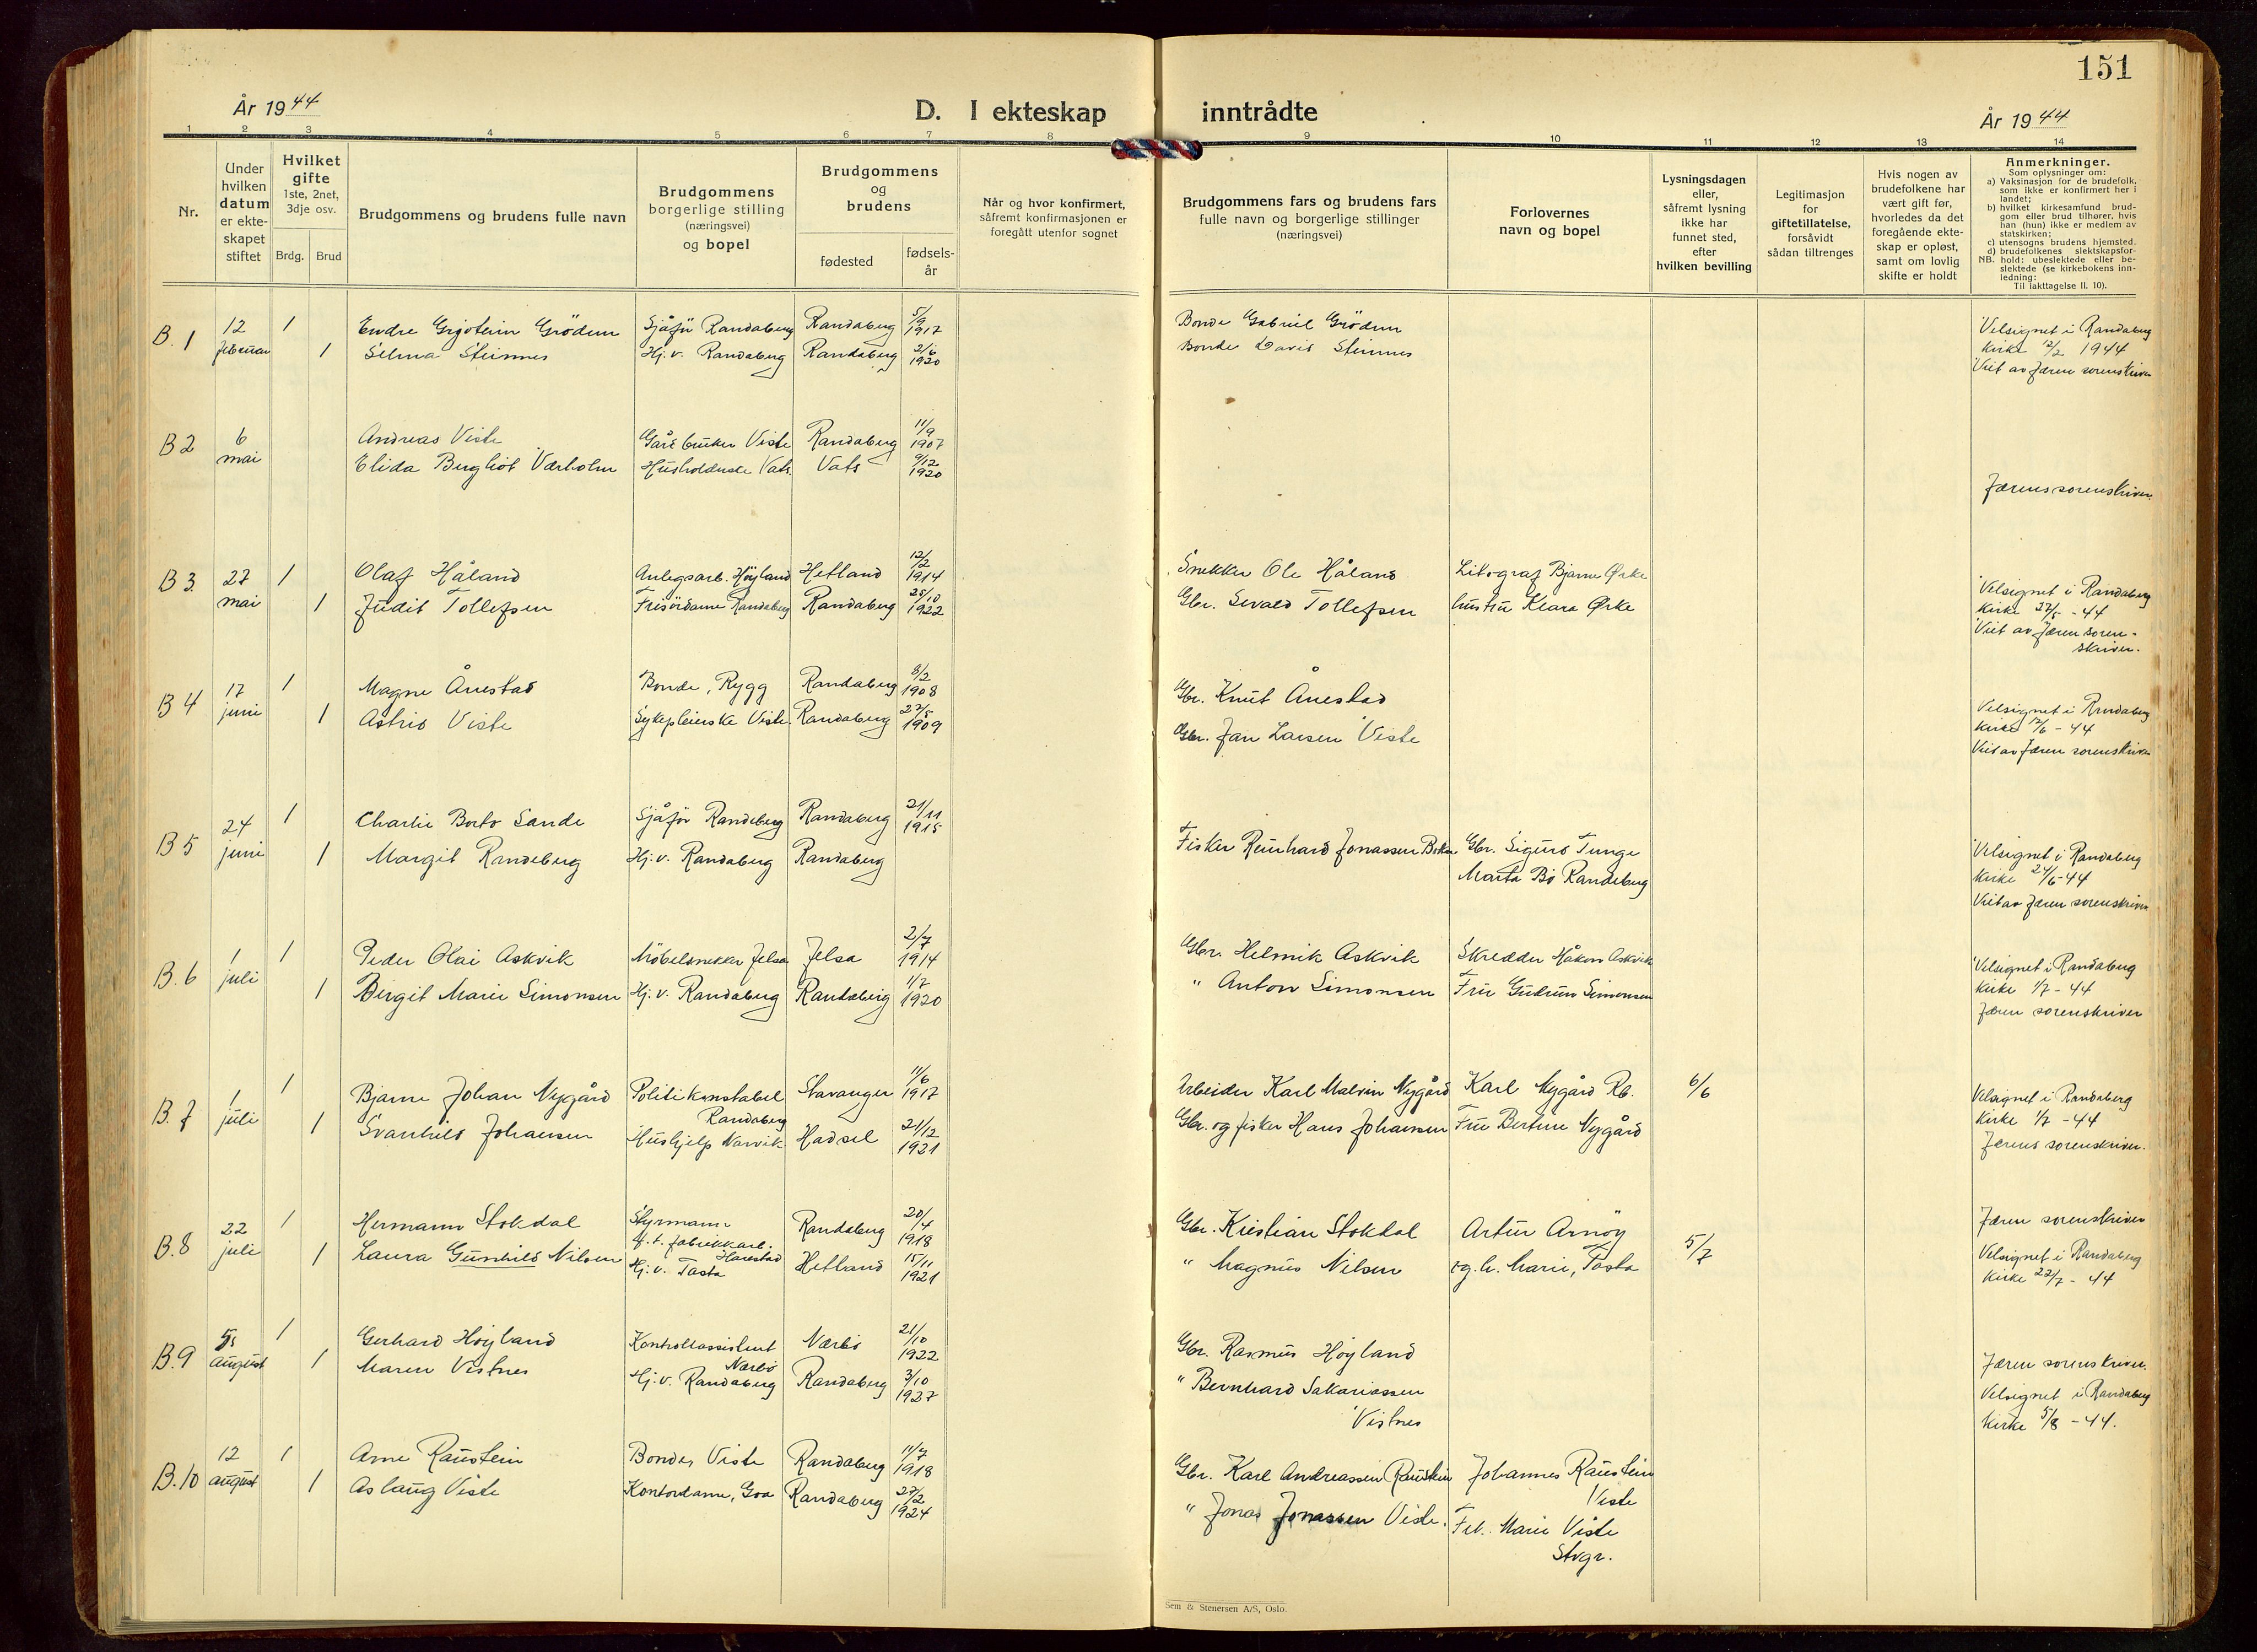 151
År 1944
D. I ekteskap inntrådte
År 1944
1 2 3 4 5 6 7 8 9 10 11 12 13 14
Nr.
Under
hvilken
datum
er ekte-
skapet
stiftet
Hvilket
gifte
1ste, 2net,
3dje osv.
Brdg. Brud
Brudgommens og brudens fulle navn
Brudgommens
borgerlige stilling
(næringsvei)
og bopel
Brudgommens
og
brudens
fødested
fødsels-
år
Når og hvor konfirmert,
såfremt konfirmasjonen er
foregått utenfor sognet
Brudgommens fars og brudens fars
fulle navn og borgerlige stillinger
(næringsvei)
Forlovernes
navn og bopel
Lysningsdagen
eller,
såfremt lysning
ikke har
funnet sted,
efter
hvilken bevilling
Legitimasjon
for
giftetillatelse,
forsåvidt
sådan tiltrenges
Hvis nogen av
brudefolkene har
vært gift før,
hvorledes da det
foregående ekte-
skap er opløst,
samt om lovlig
skifte er holdt
Anmerkninger.
Som oplysninger om:
a) Vaksinasjon for de brudefolk,
som ikke er konfirmert her i
landet;
b) hvilket kirkesamfund brud-
gom eller brud tilhører, hvis
han (hun) ikke er medlem av
statskirken;
c) utensogns brudens hjemsted.
d) brudefolkenes slektskapsfor-
NB. hold: ubeslektede eller be-
slektede (se kirkebokens inn-
ledning:
Til iakttagelse II. 10).
B. 1 12 februar 1 Endre Grödem Sjåfør Randaberg Randaberg 5/9 1917 Bonde Gabriel Grödem
1 Selma Steinnes Hj.v. Randaberg Randaberg 2/6 1920 Bonde David Steinnes
Velsignet i Randaberg
kirke 12/2 1944
Viet av Jæren sorenskriver
B 2 6 mai Andreas Viste Gårdbruker Viste Randaberg 11/9 1907
Elida Bergliot Værholm Husholderske Vats Vats 9/12 1920
Jærens sorenskriver
B 3. 27 mai 1 Olaf Håland Anlegsarb. Höyland Hetland 12/2 1914 Snekker Ole Håland Litograf Bjarne Ørke
1 Judit Tollefsen Frisördame Randaberg Randaberg 25/10 1922 Gbr. Sevald Tollefsen hustru Klara Ørke
Velsignet i Randaberg
kirke 27/5 - 44
Viet av Jæren soren-
skriver.
B 4 17 juni 1 Magne Ånestad Bonde, Rygg Randaberg 8/2 1908 Gbr. Knut Ånestad
1 Astrid Viste Sykepleierske Viste Randaberg 27/5 1909 Gbr. Jan Larsen Viste
Velsignet i Randaberg
kirke 17/6 - 44
Viet av Jæren sorenskriver
B 5 24 juni 1 Charlie Sande Sjåfør Randaberg Randaberg 21/11 1915
1 Margit Randeberg Hj.v. Randaberg Randaberg
Fisker Reinhard Jonassen Gbr. Sigurd Tunge
Marta Bö Randeberg
Velsignet i Randaberg
kirke 24/6-44
Viet av Jæren sorenskriver
B. 6 1 juli 1 Peder Olai Askvik Möbelsnekker Jelsa Jelsa 2/7 1914 Gbr. Helmik Askvik Skredder Håkon Askvik
1 Bergit Marie Simonsen Hj.v. Randaberg Randaberg 11/7 1920 " Anton Simonsen Fru Gudrun Simonsen
Velsignet i Randaberg
kirke 1/7 - 44
Jæren sorenskriver
B. 7 1 juli 1 Bjarne Johan Nygård Politikonstabel Stavanger 11/6 1917 Arbeider Karl Malvin Nygård Karl Nygård Rb. 6/6
Randaberg
1 Svanhild Johansen Hushjelp Narvik Hadsel 21/12 1921 Gbr. og fisker Hans Johansen Fru Bertine Nygård
Velsignet i Randaberg
kirke 1/7 - 44
Jærens sorenskriver.
B. 8 22 juli 1 Hermann Stokdal Styrmann Randaberg 20/4 1918 Gbr. Kristian Stokdal Artur Arnöy 5/7
f.t. fabrikkarb. Harestad
1 Laura Gunhild Nilsen Hj.v. Tasta Hetland 15/11 1921 " Magnus Nilsen og h. Marie, Tasta
Jæren sorenskriver
Velsignet i Randaberg
kirke 22/7 - 44
B. 9 5 august 1 Gerhard Höyland Kontrollassistent Nærbö 21/10 1922 Gbr. Rasmus Höyland
Nærbö
1 Maren Vistnes Hj.v. Randaberg Randaberg 3/10 1927 " Bernhard Sakariassen
Vistnes
Jæren sorenskriver.
Velsignet i Randaberg
kirke 5/8 - 44.
B. 10 12 august 1 Arne Raustein Bonde, Viste Randaberg 11/7 1918 Gbr. Karl Andreassen Raustein Johannes Raustein
Viste
1 Aslaug Viste Kontordame, Goa Randaberg 27/2 1924 " Jonas Jonassen Viste. Frk. Marie Viste
Stvgr.
Sem & Stenersen A/S, Oslo.